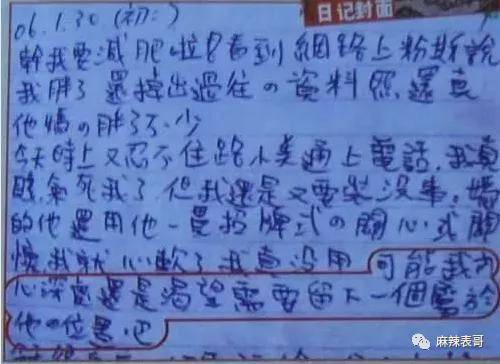 日记封面
06.1.30 (初二)
幹我要減肥啦 看到網路上粉斯說
我胖了 還 出過往の資料照 還真
他媽の胖了不少
今天 上又忍不住 小美通上電話.我真
氣死我了 但我還是又要裝没事.媽
的他還用他一貫招牌式の關心 關
懷我就心軟了我真没用 可能我内
心深處還是渴望需要留下一個屬於
他の位置吧
麻辣表哥